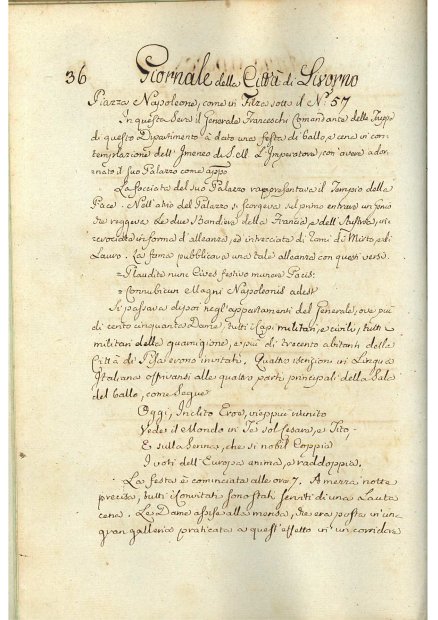 36 Giornale della Città di Livorno
Piazza Napoleone, come in Filza sotto il N.° 57
In questa Sera il Generale Franceschi Comandante delle Trupp
di questo Dipartimento à dato una festa di ballo, e cena in con-
templazione dell' Imeneo di S. e R. L'Imperatore, con avere ador-
nato il suo Palazzo come app.°
La facciata del suo Palazzo rappresentava il Tempio della
Pace. Nell' atrio del Palazzo si scorgeva sul primo entrare un Genio
che reggeva le due Bandiere della Francia, e dell' Austria,
in forma d'alleanza, ed intrecciata di rami di Mirto, e di
Lauro. La fama pubblicava una tale alleanza con questi versi.
= Plaudite nunc Cives festivo munere Pacis:
= Connubium Magni Napoleonis adest
Si passava dipoi negl' appartamenti del Generale, ove più
di cento cinquanta Dame, tutti i Capi militari, e civili, tutti i
militari della guarnigione, e più di trecento abitanti della
Città di Pisa erano invitati. Quattro iscrizioni in Lingua
Italiana offrivansi alle quattro parti principali della Sala
del ballo, come Segue
Oggi, Inclito Eroe, vieppiù riunito
Vede il Mondo in Te sol Cesare, e Tito.
E sulla Senna, che sì nobil Coppia
I voti dell' Europa anima, e raddoppia.
La festa è cominciata alle ore 7. A mezza notte
precisa, tutti i Convitati sono stati serviti di una Lauta
cena. Le Dame assise alla mensa, che era posta in un
gran galleria praticata a quest' effetto in un corridore